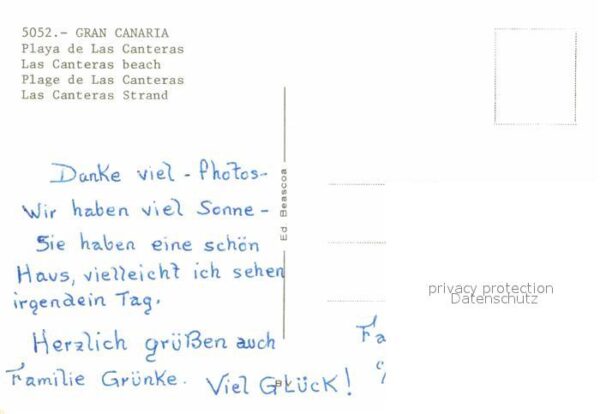 5052.- GRAN CANARIA
Playa de Las Canteras
Las Canteras beach
Plage de Las Canteras
Las Canteras Strand
Danke viel - Photos -
Wir haben viel Sonne -
Sie haben eine schön
Haus, vielleicht ich sehen
irgendein Tag.
Herzlich grüßen auch
Familie Grünke. Viel GLücK!
Ed Beascoa
privacy protection
Datenschutz
Fa